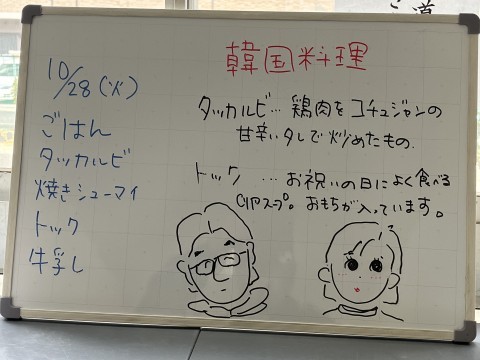 韓国料理
10/28(火)
ごはん
タッカルビ
焼きシューマイ
トック
牛乳
タッカルビ…鶏肉をコチュジャンの
甘辛いタレで炒めたもの.
トック …お祝いの日によく食べる
スープ。おもちが入っています。